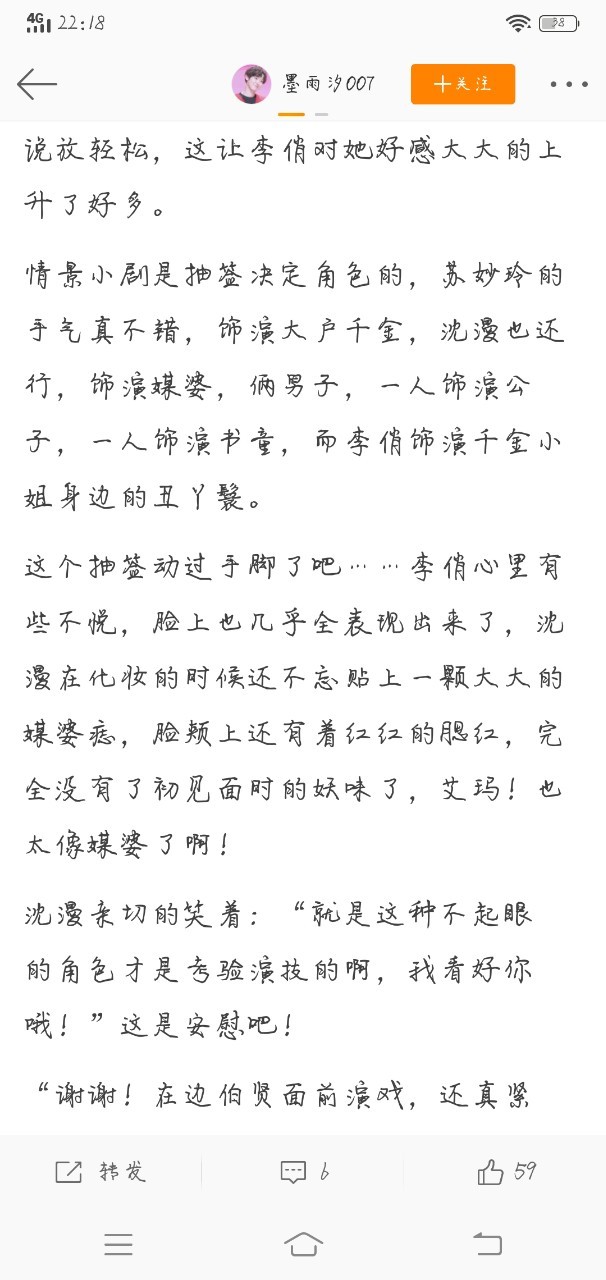 4G 22:18 38
墨雨汐007 +关注
说放轻松，这让李俏对她好感大大的上
升了好多。
情景小剧是抽签决定角色的，苏妙玲的
手气真不错，饰演大户千金，沈漫也还
行，饰演媒婆，俩男子，一人饰演公
子，一人饰演书童，而李俏饰演千金小
姐身边的丑丫鬟。
这个抽签动过手脚了吧……李俏心里有
些不悦，脸上也几乎全表现出来了，沈
漫在化妆的时候还不忘贴上一颗大大的
媒婆痣，脸颊上还有着红红的腮红，完
全没有了初见面时的妖味了，艾玛！也
太像媒婆了啊！
沈漫亲切的笑着：“就是这种不起眼
的角色才是考验演技的啊，我看好你
哦！”这是安慰吧！
“谢谢！在边伯贤面前演戏，还真紧
转发 6 59